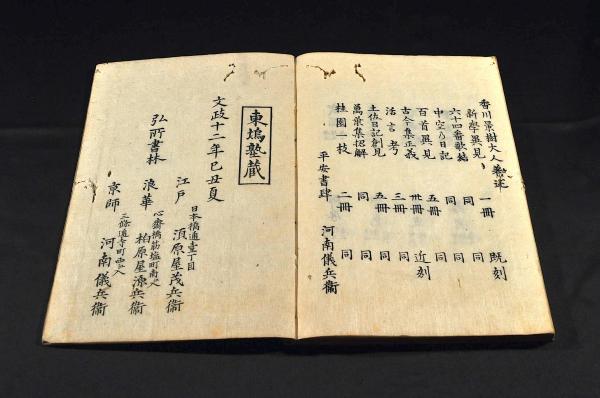 香川景樹大人著述
新學異見 一冊 既刻
六十四番歌結 同 同
中空の日記 同 同
百首異見 五冊 同
古今集正義 卅冊 近刻
活言考 三冊 同
土佐日記創見 五冊 同
萬葉集捃解 同 同
桂園一枝 二冊 同
平安書肆 河南儀兵衞
東塢塾藏
文政十二年己丑夏
江戸 日本橋通壹丁目
須原屋茂兵衞
弘所書林
浪華 心斎橋筋塩町南入
柏原屋源兵衞
京師 三條通寺町西入
河南儀兵衞